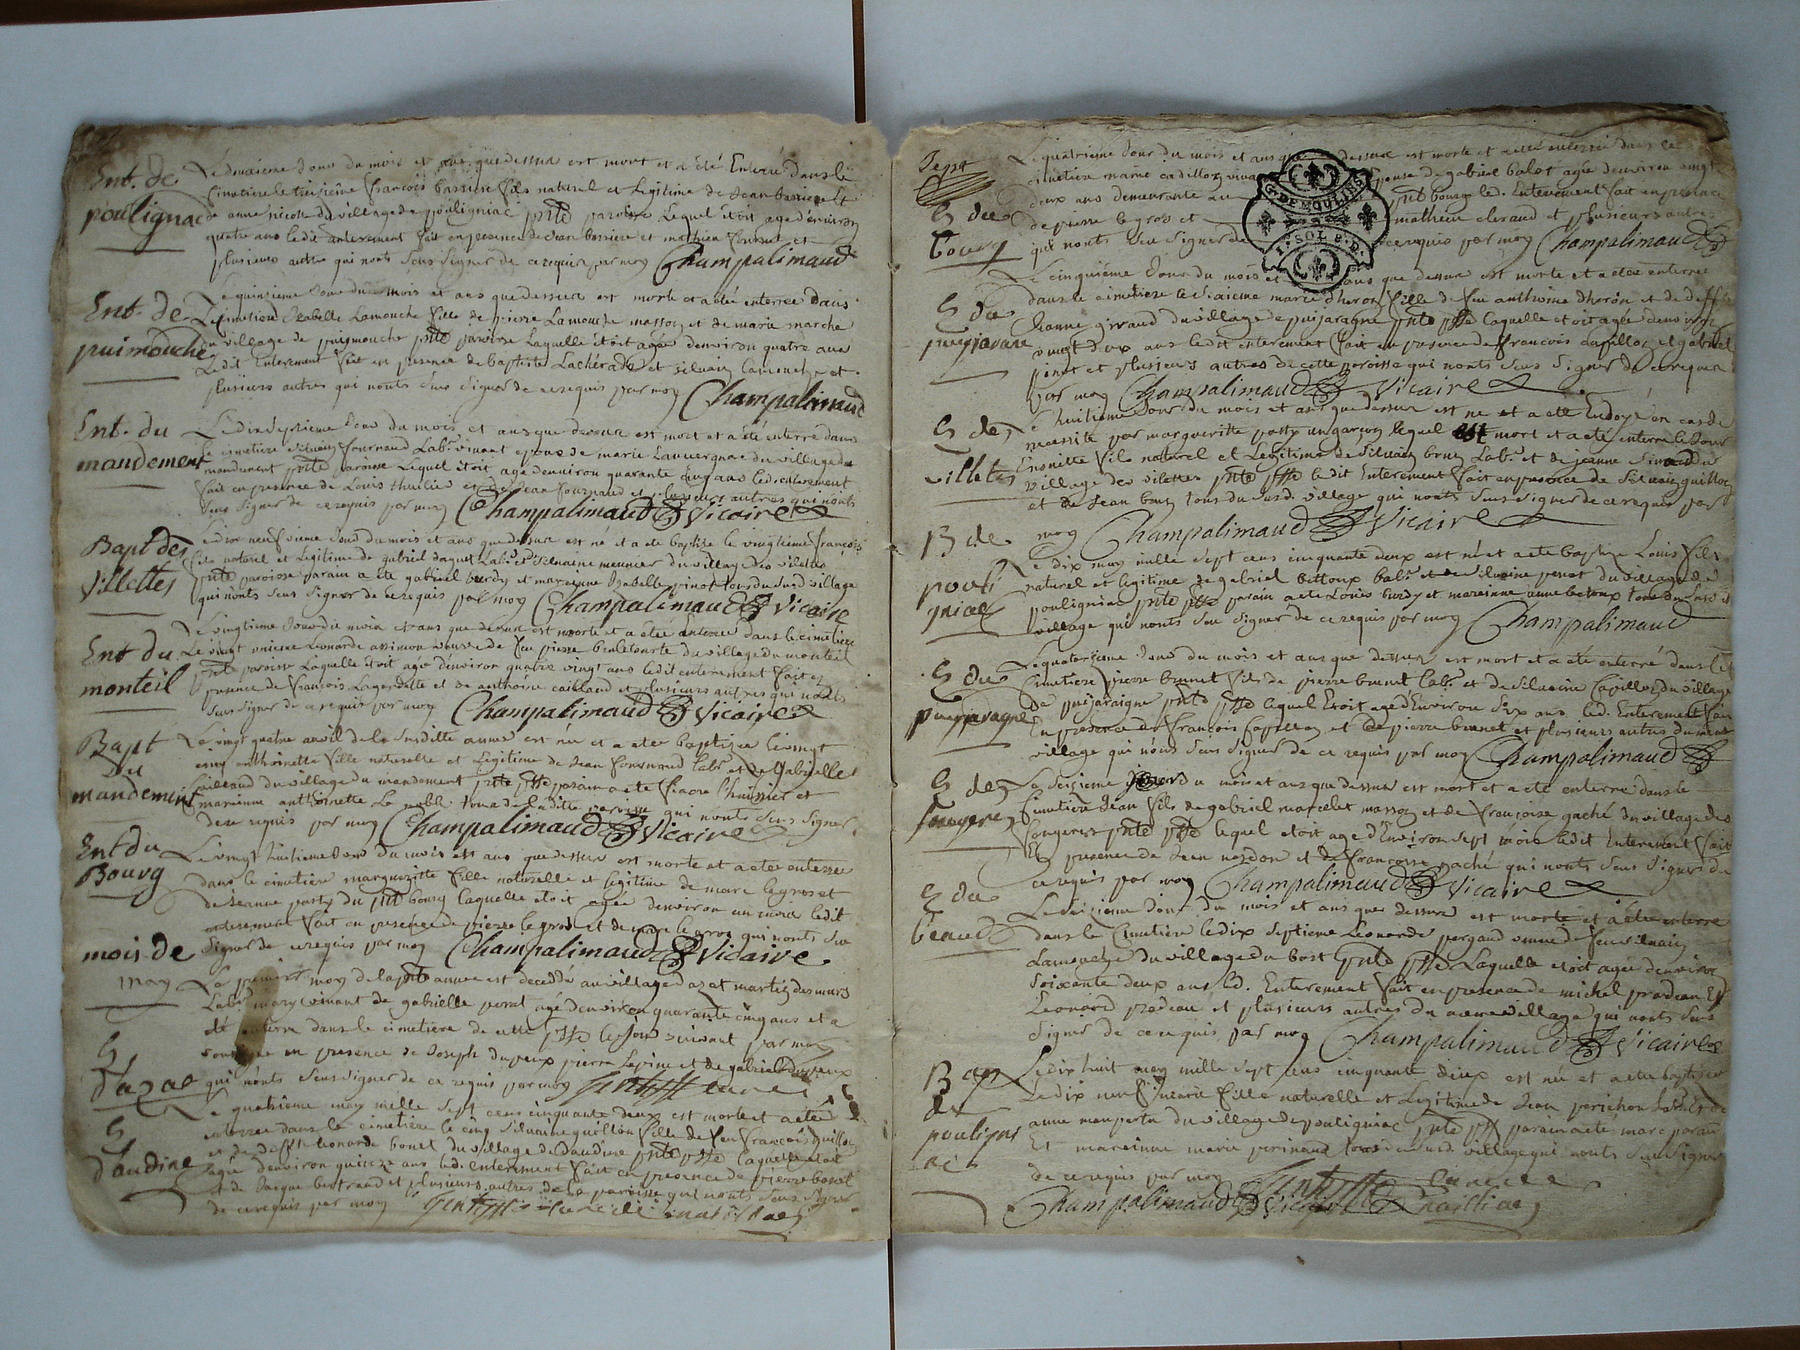 Ent. de
poulignac
Le douzième Jour du mois et ans que dessus est mort et a été Enterré dans le
Cimetiere le treizième François barriere fils naturel et Legitime de Jean barriere et
de anne nicolle du village de pouligniac pnte paroisse Lequel étoit agé d'environ
quatre ans ledit enterement fait en presence de Jean barriere et mathieu fournaud et
plusieurs autres qui nonts Seus signer de ce requis par moy Champalimaud
Ent. de
puimouche
Le quinzieme Jour du mois et ans que dessus est morte et a été enterrée dans
Le Cimetiere Isabelle Lamouche fille de pierre Lamouche masson et de marie marche
du village de puimouche pnte paroisse Laquelle étoit agée denviron quatre ans
Ledit Enterement fait en presence de baptiste Lacherade et silvain Lamouche et
plusieurs autres qui nonts Seus signer de ce requis par moy Champalimaud
Ent. du
mandement
Le dix septieme Jour du mois et ans que dessus est mort et a été enterré dans
le cimetiere silvain fournaud Labr vivant epoux de marie Lauvergnac du village du
mandement pnte paroisse Lequel étoit agé denviron quarante cinq ans led. enterement
fait en presence de Louis thuilier et de Jean fournaud et plusieurs autres qui nonts
Seus signer de ce requis par moy Champalimaud Vicaire
Bapt des
Villettes
Le dix neufvieme Jour du mois et ans que dessus est né et a été baptizé le vingtieme françois
fils naturel et Legitime de gabriel daguet Labr et Silvaine meunier du village des vilettes
pnte paroisse parain a été gabriel burdy et mareinne Isabelle pinot tous du susd village
qui nonts Seus signer de ce requis par moy Champalimaud Vicaire
Ent du
monteil
Le vingtieme Jour du mois et ans que dessus est morte et a été enterrée dans le cimetiere
Le vingt unieme Leonarde assimon veuve de feu pierre boulesourte du village du monteil
pnte paroisse Laquelle étoit agé denviron quatre vingt ans ledit enterement fait en
presence de françois Lagerdette et de anthoine caillaud et plusieurs autres qui nonts
Seus signer de ce requis par moy Champalimaud Vicaire
Bapt
du
mandement
Le vingt quatre avril de la Susditte année est née et a été baptizée le vingt
cinq anthoinette fille naturelle et Légitime de Jean fournaud labr et de Gabrielle
caillaud du village du mandement pnte psse parain a été fiacre thuilier et
mareinne anthoinette La noble tous de laditte paroisse qui nonts Seus signer
de ce requis par moy Champalimaud Vicaire
Ent du
Bourg
Le vingt huitieme Jour du mois et ans que dessus est morte et a été enterrée
dans le cimetiere margueritte fille naturelle et legitime de marc legros et
de Jeanne party du pnt bourg laquelle étoit agée denviron un mois ledit
enterement fait en presence de pierre le gros et de marc le gros qui nonts Seu
signer de ce requis par moy Champalimaud Vicaire
mois de
may
E
d'azac
Le premier may de la pnte annee est décédé au village dazat martin desmurs
Labr mary vivant de gabrielle perot agé denviron quarante cinq ans et a
été enterré dans le cimetiere de cette psse le Jour suivant par moy
en presence de Joseph dupeux pierre Lepine et de gabriel dupeux
qui nonts Seus signer de ce requis par moy
E
daudine
Le quatrieme may mille sept cens cinquante deux est morte et a été
enterrée dans le cimetiere le cinq Silvaine guillon fille de feu françois guillon
et de deffte leonarde bonet du village de Daudine pnte psse Laquelle étoit
agée denviron quinze ans led. enterement fait en presence de pierre bonet
et de Jacque bertrand et plusieurs autres de la paroisse qui nonts Seus signer
de ce requis par moy
Sept
E du
bourg
Le quatrieme Jour du mois et ans que dessus est morte et a été enterrée dans le
cimetiere marie cadillon epouse de gabriel balot agée denviron vingt
deux ans demeurante au pnt bourg led. Enterement fait en presence
de pierre legros et mathieu cleraud et plusieurs autres
qui nonts Seu signer de ce requis par moy Champalimaud
G. DE MOULINS
1. SOL 8. D.
E de
puyjarane
Le cinquieme Jour du mois et ans que dessus est morte et a été enterrée
dans le cimetiere le Sixieme marie dheron fille de feu anthoine dheron et de deffte
Jeanne giraud du village de puijaragne pnte psse laquelle étoit agée denviron
vingt deux ans ledit enterement fait en presence de françois capillon et gabriel
penot et plusieurs autres de cette paroisse qui nonts Seus signer de ce requis
par moy Champalimaud Vicaire
E des
villettes
Le huitieme Jour du mois et ans que dessus est né et a été Endoyé en cas de
necessité par margueritte party un garçon lequel est mort et a été enterré le Jour
Ensuitte fils naturel et Legitime de Silvain brun Labr et de jeanne Siraud du
village des vilettes pnte psse ledit Enterement fait en presence de Silvain guillon
et de Jean brun tous du susd. village qui nonts Seus signer de ce requis par
moy Champalimaud Vicaire
B de
pouli
gniac
Le dix may mille sept cens cinquante deux est né et a été baptizé Louis fils
naturel et legitime de gabriel bettoux labr et de silvaine penot du village de
pouligniac pnte psse parain a été Louis burdy et mareinne anne betoux tous du susd
village qui nonts Seu signer de ce requis par moy Champalimaud
E du
puyjaragne
Le quatorzieme Jour du mois et ans que dessus est mort et a été enterré dans le
Cimetiere pierre brunet fils de pierre brunet labr et de Silvaine Capillon du village
de puijaraigne pnte psse lequel Etoit agé d'Environ Six ans led. Enterement fait
En presence de françois Capillon et de pierre brunet et plusieurs autres du meme
village qui nonts Seus signer de ce requis par moy Champalimaud
E des
fougeres
Le Seizieme Jour du mois et ans que dessus est mort et a été enterré dans le
Cimetiere Jean fils de gabriel marcelet masson et de françoise gaché du village des
fougeres pnte psse lequel étoit agé d'Environ sept mois ledit Enterement fait
En presence de Jean nordon et de françoise gaché qui nonts Seus signer de
ce requis par moy Champalimaud Vicaire
E du
beaud
Le Seizieme Jour du mois et ans que dessus est morte et a été enterrée
dans le Cimetiere le dix septieme Leonarde pergaud veuve de feu silvain
Lamouche du village du bost pnte psse Laquelle étoit agée denviron
Soixante deux ans led. Enterement fait en presence de michel pradeau Et
Leonard pradeau et plusieurs autres du meme village qui nonts Seus
signer de ce requis par moy Champalimaud Vicaire
Bap
de
pouligni
ac
Le dix huit may mille sept cens cinquante deux est née et a été baptizée
Le dix neuf marie fille naturelle et Legitime de Jean perichon labr et de
anne mauperta du village de pouligniac pnte psse parain a été marc parain
Et mareinne marie perinaud tous du susd. village qui nonts Seus signer
de ce requis par moy
Champalimaud Vicaire